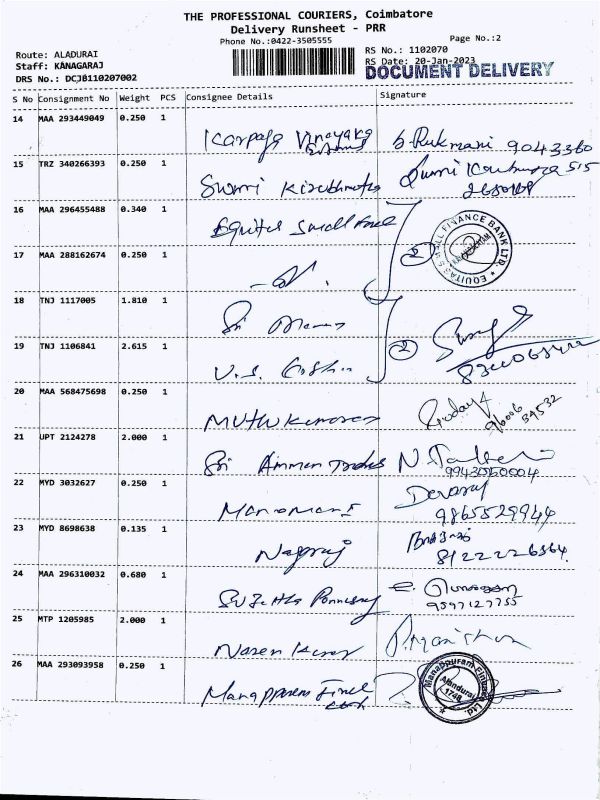 THE PROFESSIONAL COURIERS, Coimbatore
Delivery Runsheet - PRR
Phone No.:0422-3505555
Page No.:2
Route: ALADURAI
Staff: KANAGARAJ
DRS No.: DCJ0110207002
RS No.: 1102070
RS Date: 20-Jan-2023
DOCUMENT DELIVERY
S No Consignment No Weight PCS Consignee Details Signature
14 MAA 293449049 0.250 1 Karpaga Vinayaka b. Rukmani 9043360
15 TRZ 340266393 0.250 1 Swami
16 MAA 296455488 0.340 1 Equitas Small Fine 2 EQUITAS SMALL FINANCE BANK LTD.
17 MAA 288162674 0.250 1 -do-
18 TNJ 1117005 1.810 1 Sri
19 TNJ 1106841 2.615 1 V.S. 2
20 MAA 568475698 0.250 1 Muthukumaran 96006 54532
21 UPT 2124278 2.000 1 Sri Amman Traders N. 9943550004
22 MYD 3032627 0.250 1 Manomani Devaraj
9865529944
23 MYD 8698638 0.135 1 Nagaraj
8122226364
24 MAA 296310032 0.680 1 Sujatha
9597127755
25 MTP 1205985 2.000 1 Naren Kumar
26 MAA 293093958 0.250 1 Manappuram Finel Manappuram Finance Ltd.